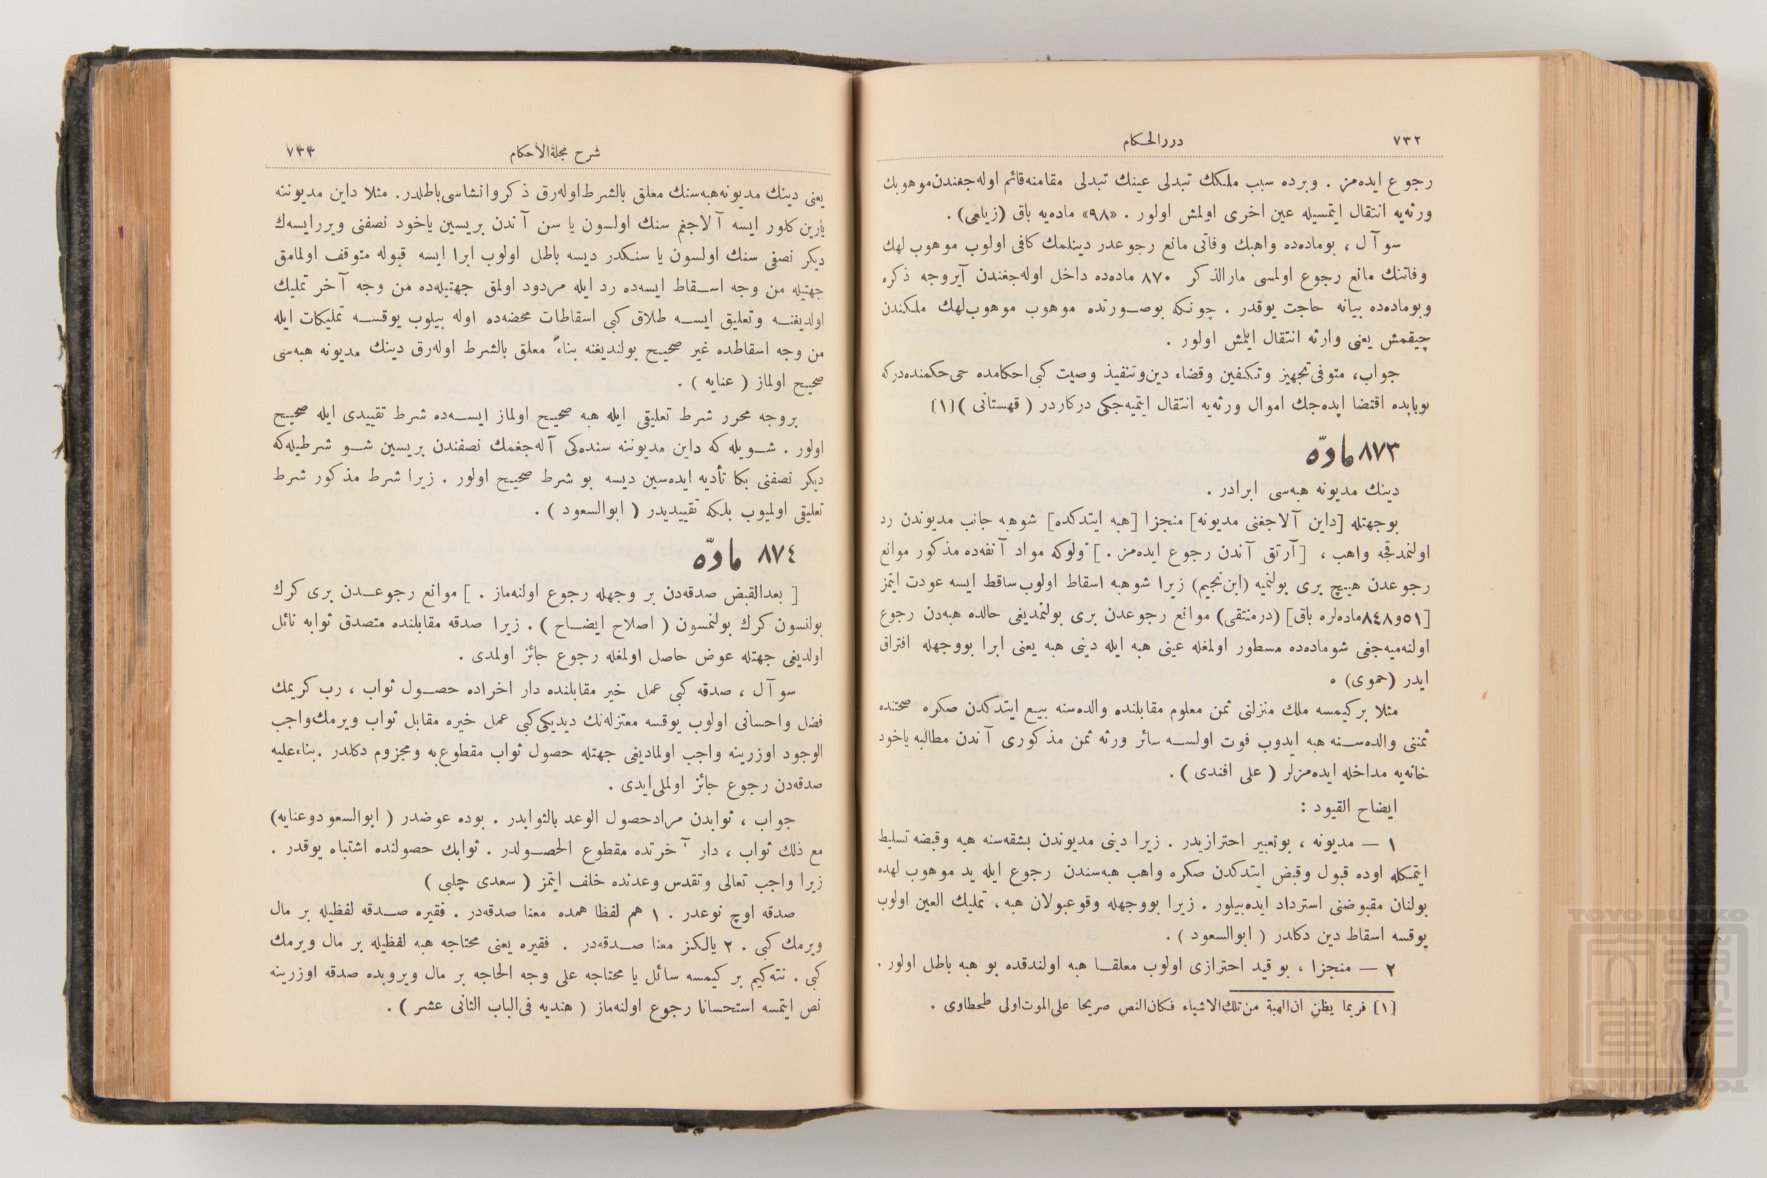 ٧٣٢
دررالحكام
رجوع ايده‌مز . وبرده سبب ملكك تبدلى عينك تبدلى مقامنه قائم اوله‌جغندن موهوبك
ورثه‌يه انتقال ايتمسيله عين اخرى اولمش اولور . «٩٨» ماده‌يه باق (زيلعى) .
سوآل ، بوماده‌ده واهبك وفاتى مانع رجوعدر دينلمك كافى اولوب موهوب لهك
وفاتنك مانع رجوع اولمسى مارالذكر ٨٧٠ ماده‌ده داخل اوله‌جغندن آيروجه ذكره
وبوماده‌ده بيانه حاجت يوقدر . چونكه بوصورتده موهوب موهوب‌لهك ملكندن
چيقمش يعنى وارثه انتقال ايتمش اولور .
جواب، متوفى تجهيز وتكفين وقضاء دين وتنفيذ وصيت كبى احكامده حى حكمنده‌دركه
بوبابده اقتضا ايده‌جك اموال ورثه‌يه انتقال ايتميه‌جكى دركاردر ( قهستانى )[١]
٨٧٣ مادّه
دينك مديونه هبه‌سى ابرادر .
بوجهتله [داين آلاجغنى مديونه] منجزا [هبه ايتدكده] شوهبه جانب مديوندن رد
اولنمدقجه واهب ، [آرتق آندن رجوع ايده‌مز .] ولوكه مواد آنفه‌ده مذكور موانع
رجوعدن هيچ برى بولنميه (ابن نجيم) زيرا شوهبه اسقاط اولوب ساقط ايسه عودت ايتمز
[٥١و٨٤٨ماده‌لره باق] (درمنتقى) موانع رجوعدن برى بولنمديغى حالده هبه‌دن رجوع
اولنه‌ميه‌جغى شوماده‌ده مسطور اولمغله عينى هبه ايله دينى هبه يعنى ابرا بووجهله افتراق
ايدر (حموى) .
مثلا بركيمسه ملك منزلنى ثمن معلوم مقابلنده والده‌سنه بيع ايتدكدن صكره صحتنده
ثمننى والده‌سنه هبه ايدوب فوت اولسه سائر ورثه ثمن مذكورى آندن مطالبه ياخود
خانه‌يه مداخله ايده‌مزلر ( على افندى ) .
ايضاح القيود :
١ — مديونه ، بوتعبير احترازيدر . زيرا دينى مديوندن بشقه‌سنه هبه وقبضه تسليط
ايتمكله اوده قبول وقبض ايتدكدن صكره واهب هبه‌سندن رجوع ايله يد موهوب لهده
بولنان مقبوضنى استرداد ايده‌بيلور . زيرا بووجهله وقوعبولان هبه ، تمليك العين اولوب
يوقسه اسقاط دين دكلدر ( ابوالسعود ) .
٢ — منجزا ، بوقيد احترازى اولوب معلقا هبه اولندقده بو هبه باطل اولور .
[١] فربما يظن ان الهبة من تلك الاشياء فكان النص صريحا على الموت اولى طحطاوى .
شرح مجلةالأحكام
٧٣٣
يعنى دينك مديونه هبه‌سنك معلق بالشرط اوله‌رق ذكر وانشاسى باطلدر. مثلا داين مديوننه
يارين كلور ايسه آلاجغم سنك اولسون يا سن آندن بريسين ياخود نصفنى ويررايسه‌ك
ديكر نصفى سنك اولسون يا سنكدر ديسه باطل اولوب ابرا ايسه قبوله متوقف اولمامق
جهتيله من وجه اسقاط ايسه‌ده رد ايله مردود اولمق جهتيله‌ده من وجه آخر تمليك
اولديغنه وتعليق ايسه طلاق كبى اسقاطات محضه‌ده اوله بيلوب يوقسه تمليكات ايله
من وجه اسقاطده غير صحيح بولنديغنه بناءً معلق بالشرط اوله‌رق دينك مديونه هبه‌سى
صحيح اولماز ( عنايه ) .
بروجه محرر شرط تعليقى ايله هبه صحيح اولماز ايسه‌ده شرط تقييدى ايله صحيح
اولور . شويله كه داين مديوننه سنده‌كى آله‌جغمك نصفندن بريسين شو شرطيله‌كه
ديكر نصفنى بكا تأديه ايده‌سين ديسه بو شرط صحيح اولور . زيرا شرط مذكور شرط
تعليقى اولميوب بلكه تقييديدر ( ابوالسعود ) .
٨٧٤ مادّه
[ بعدالقبض صدقه‌دن بر وجهله رجوع اولنه‌ماز . ] موانع رجوعدن برى كرك
بولنسون كرك بولنمسون ( اصلاح ايضاح ) . زيرا صدقه مقابلنده متصدق ثوابه نائل
اولديغى جهتله عوض حاصل اولمغله رجوع جائز اولمدى .
سوآل ، صدقه كبى عمل خير مقابلنده دار اخراده حصول ثواب ، رب كريمك
فضل واحسانى اولوب يوقسه معتزله‌نك ديديكى كبى عمل خيره مقابل ثواب ويرمك واجب
الوجود اوزرينه واجب اولماديغى جهتله حصول ثواب مقطوع‌به ومجزوم دكلدر . بناءعليه
صدقه‌دن رجوع جائز اولملى‌ايدى .
جواب ، ثوابدن مرادحصول الوعد بالثوابدر . بوده عوضدر ( ابوالسعودوعنايه)
مع ذلك ثواب ، دار آخرتده مقطوع الحصولدر . ثوابك حصولنده اشتباه يوقدر .
زيرا واجب تعالى وتقدس وعدنده خلف ايتمز ( سعدى چلبى )
صدقه اوچ نوعدر . ١ هم لفظا همده معنا صدقه‌در . فقيره صدقه لفظيله بر مال
ويرمك كبى . ٢ يالكز معنا صدقه‌در . فقيره يعنى محتاجه هبه لفظيله بر مال ويرمك
كبى . نته‌كيم بر كيمسه سائل يا محتاجه على وجه الحاجه بر مال ويروبده صدقه اوزرينه
نص ايتمسه استحسانا رجوع اولنه‌ماز ( هنديه فى‌الباب الثانى عشر ) .
TOYO BUNKO